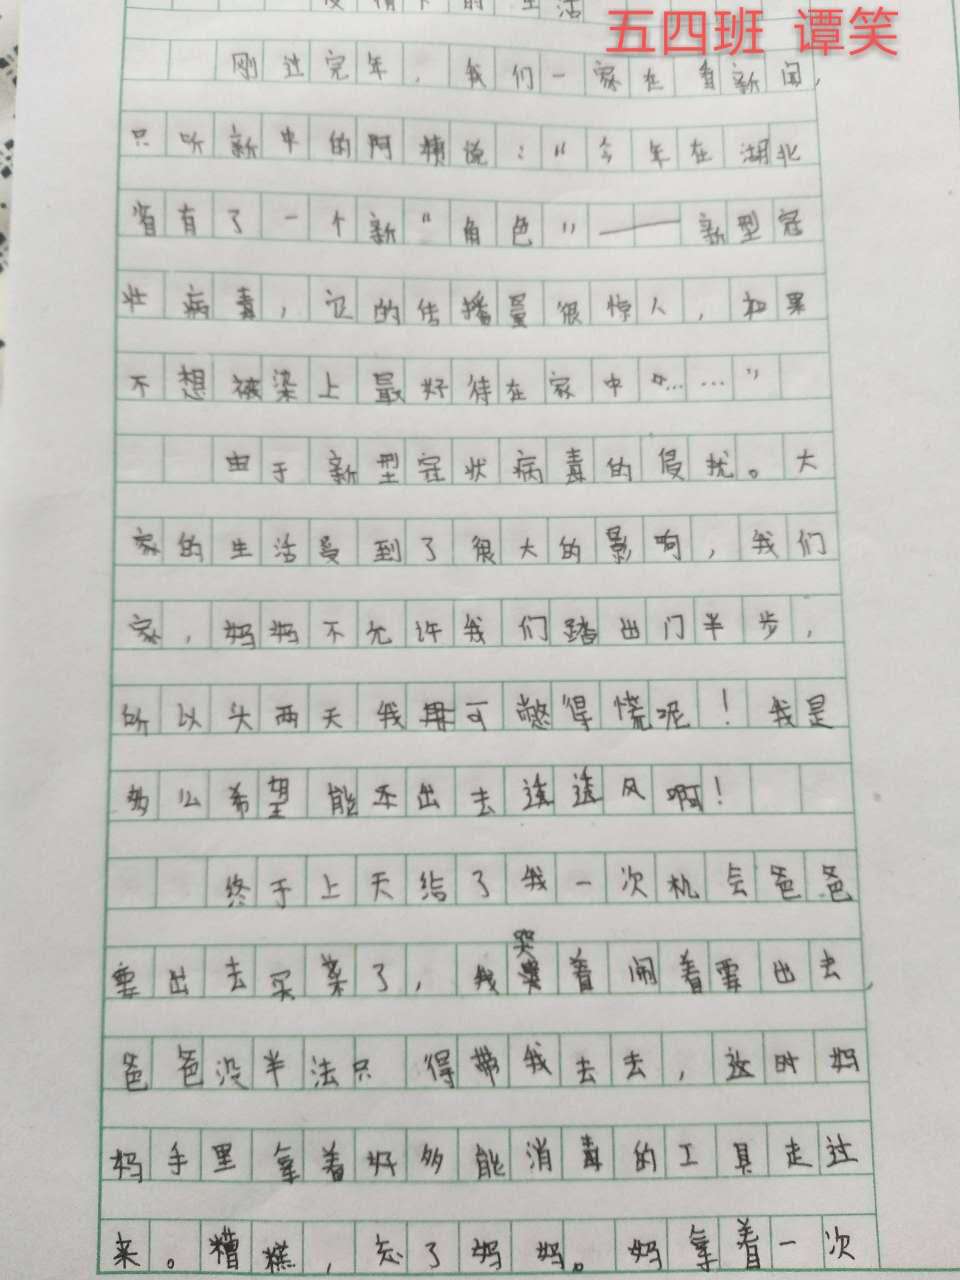 疫情下的生活
五四班 谭笑
刚过完年，我们一家在看新闻，
只听新中的阿姨说："今年在湖北
省有了一个新"角色"——新型冠
壮病毒，它的传播量很惊人，如果
不想被染上最好待在家中"……"
由于新型冠状病毒的侵扰。大
家的生活受到了很大的影响，我们
家，妈妈不允许我们踏出门半步，
所以头两天我可憋得慌呢！我是
多么希望能出去透透风啊！
终于上天给了我一次机会爸爸
要出去买菜了，我哭着闹着要出去，
爸爸没半法只得带我去去，这时妈
妈手里拿着好多能消毒的工具走过
来。糟糕，忘了妈妈。妈拿着一次